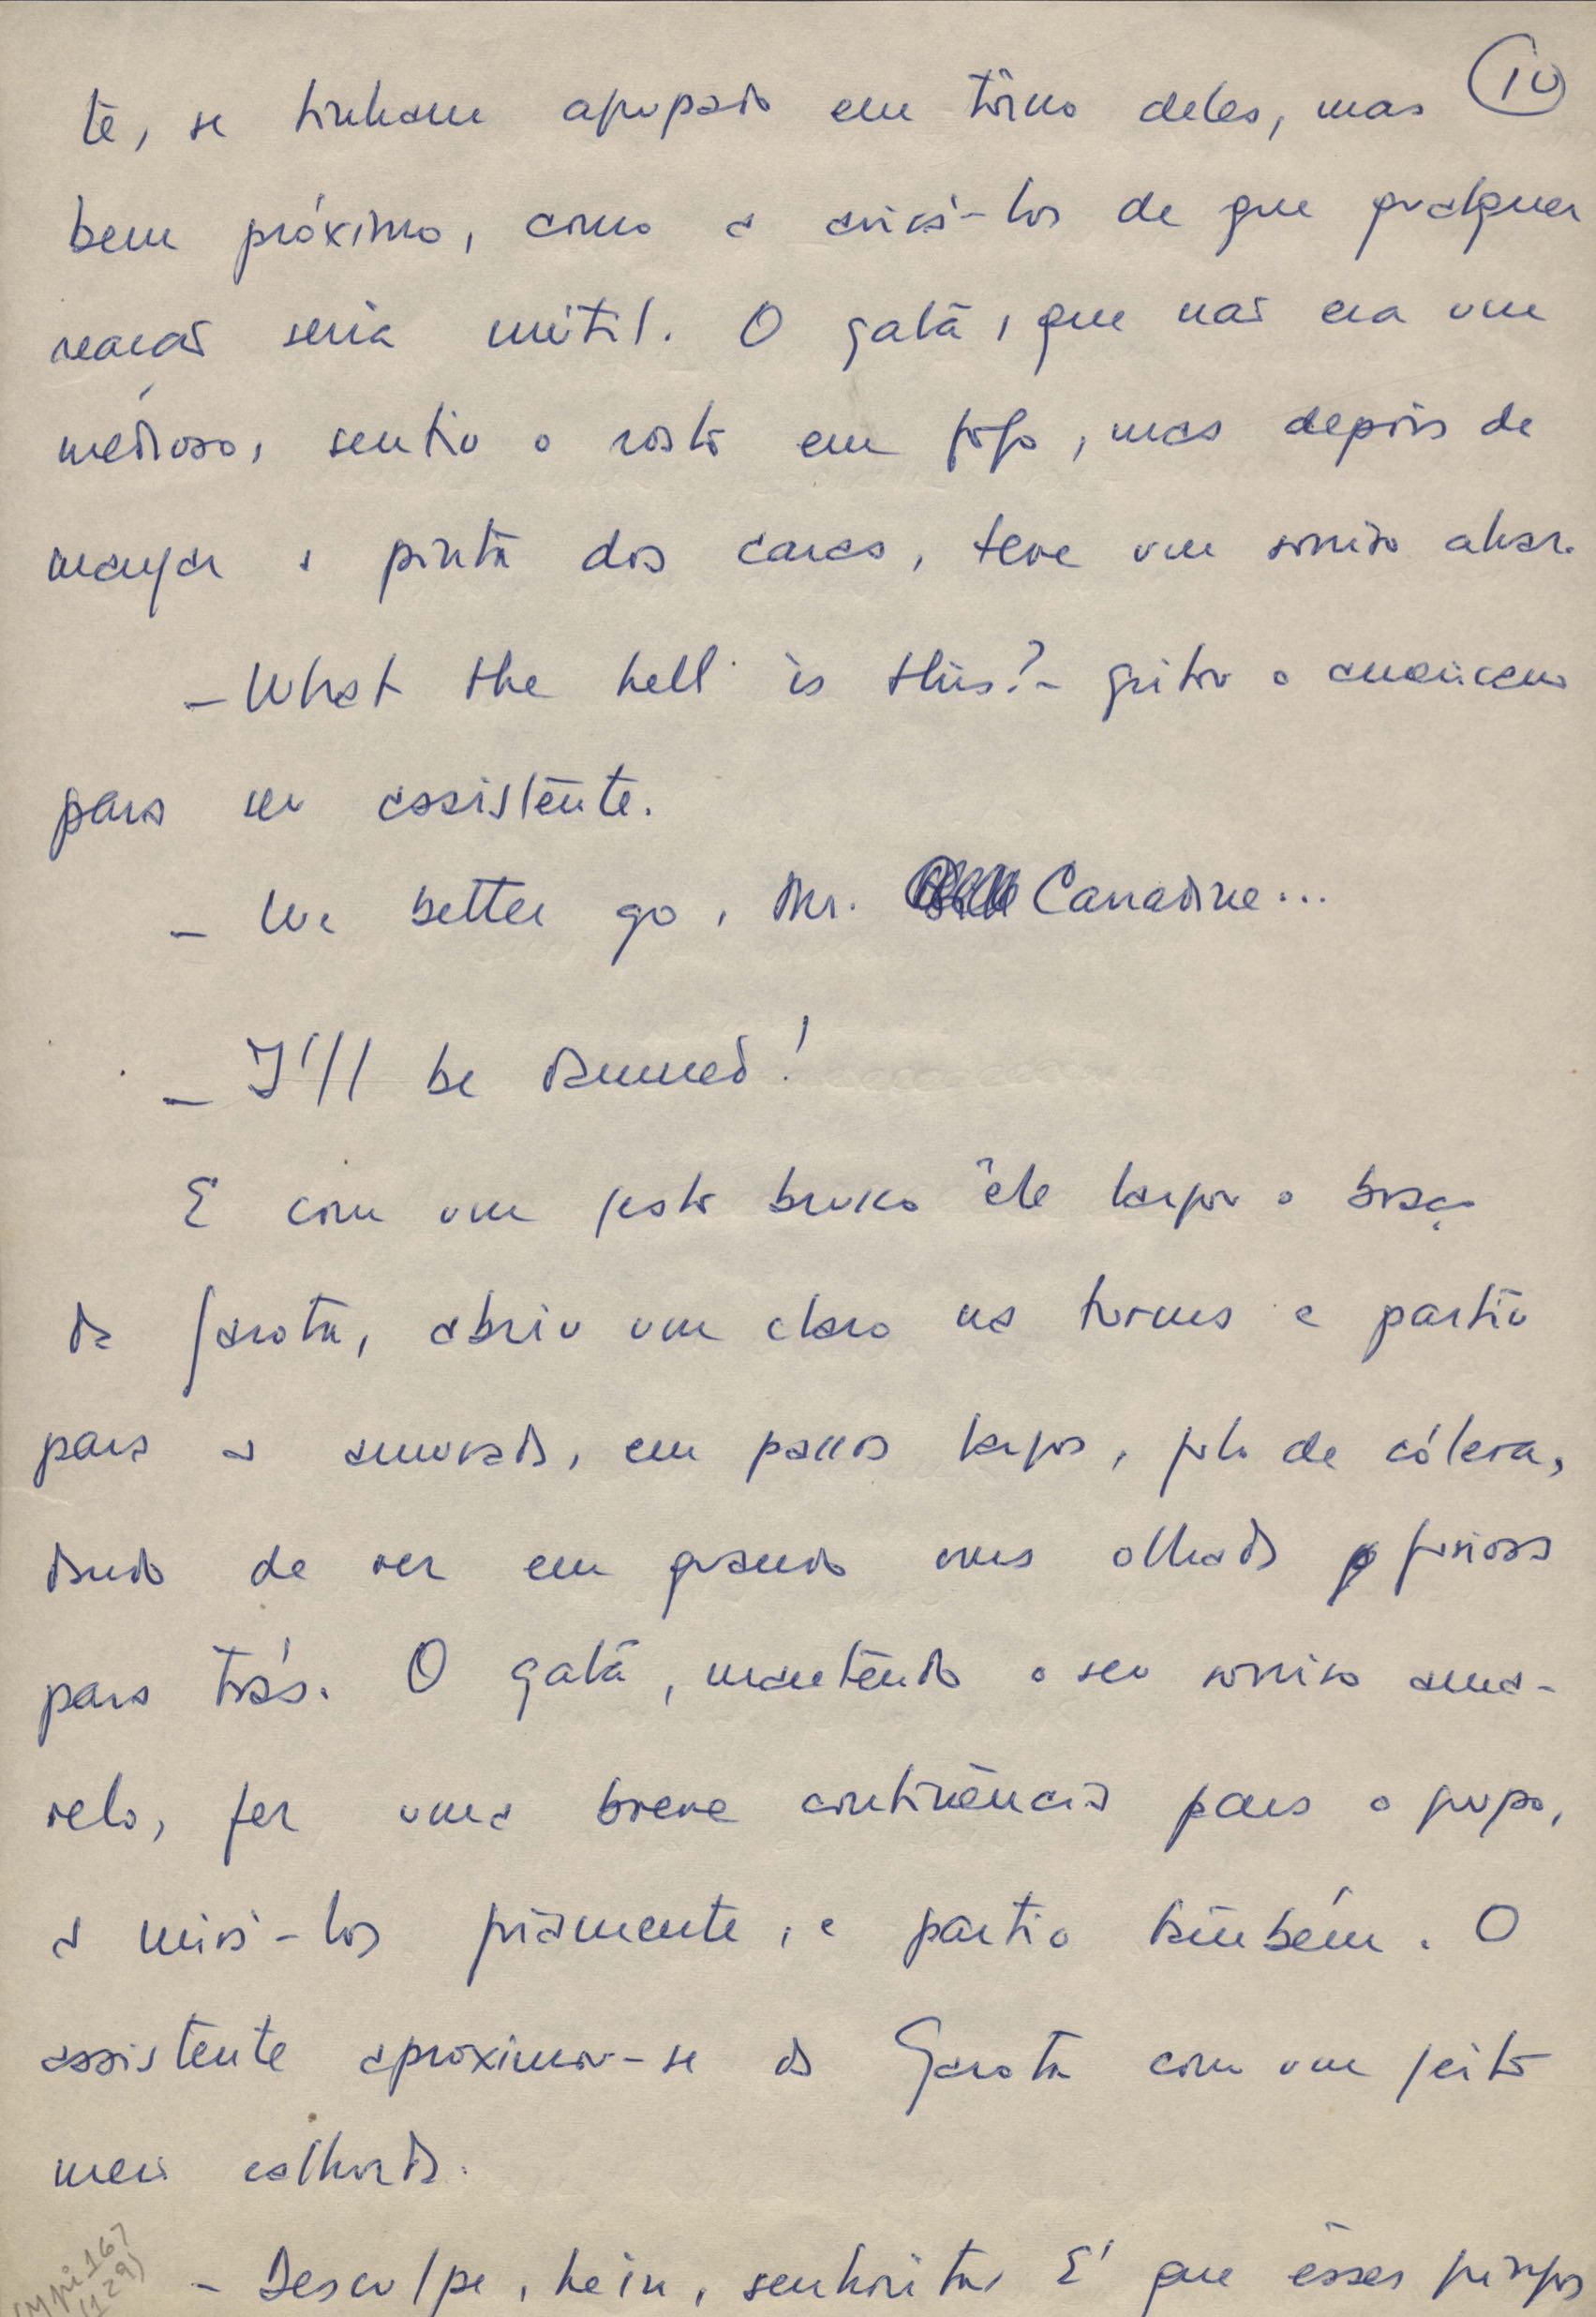 10
te, se tinham agrupado em tôrno deles, mas
bem próximo, como a avisá-los de que qualquer
reação seria inútil. O galã, que não era um
medroso, sentiu o rosto em fogo, mas depois de
manjar a pinta dos caras, teve um sorriso alvar.
- What the hell is this? - gritou o americano
para seu assistente.
- We better go, Mr. Carradine...
- I'll be damned!
E com um gesto brusco êle largou o braço
da garota, abriu um claro na turma e partiu
para a amurada, em passos largos, fulo de cólera,
dando de vez em quando umas olhadas furiosas
para trás. O galã, mantendo o seu sorriso ama-
relo, fez uma breve continência para o grupo,
a mirá-los friamente, e partiu também. O
assistente aproximou-se da Garota com um jeito
meio calhorda.
- Desculpe, hein, senhorita. É que êsses gringos